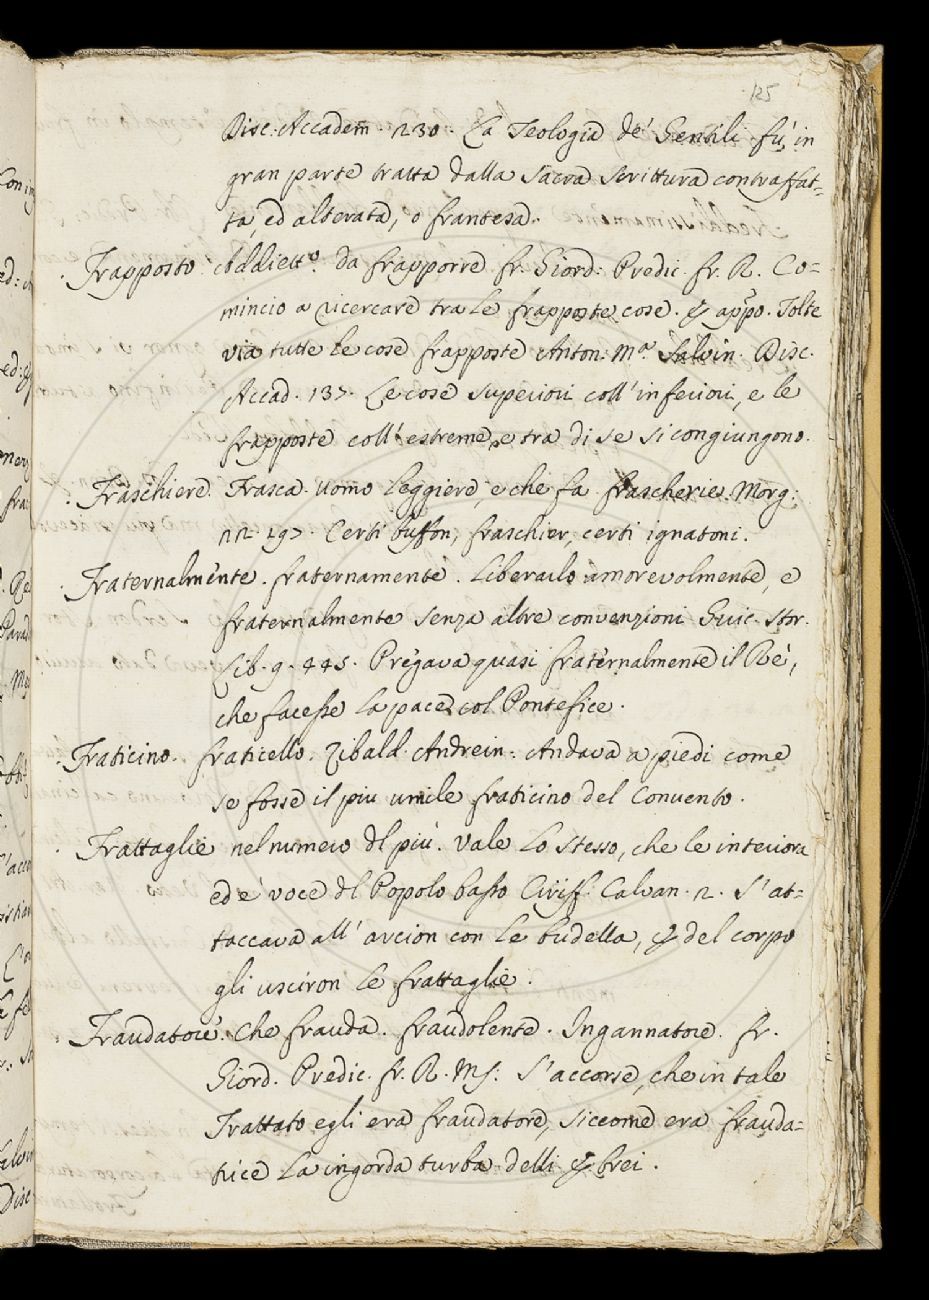 125
Disc. Accadem. 230. La Teologia de' Gentili fù in
gran parte tratta dalla Sacra Scrittura contraffat=
ta, ed alterata, o frantesa.
Frapposto. Addiett.º da frapporre fr. Giord: Predic. fr. R. Co=
mincio a ricercare tra le frapposte cose. & app̃o. Tolte
via tutte le cose frapposte Anton. M.ª Salvin. Disc.
Accad. 137. Le cose superiori coll' inferiori, e le
frapposte coll' estreme, e tra di se si congiungono.
Fraschiere. Frasca. uomo leggiere, e che fa frascherie. Morg:
22. 197. Certi buffon, fraschier, certi ignatoni.
Fraternalmente. fraternamente. Liberarlo amorevolmente, e
fraternalmente senza altre convenzioni Guic. Stor.
Lib. 9. 445. Pregava quasi fraternalmente il Rè,
che facesse la pace col Pontefice.
Fraticino. fraticello. Zibald. Andrein: Andava a piedi come
se fosse il piu umile fraticino del Convento.
Frattaglie nel numero dl più. Vale lo stesso, che le interiora
ed e' voce dl Popolo basso Ciriff. Calvan. 2. S' at=
taccava all' arcion con le budella, & del corpo
gli usciron le frattaglie.
Fraudatore. Che frauda. fraudolente. Ingannatore. fr.
Giord. Predic. fr. R. MS. S' accorse, che in tale
Trattato egli era fraudatore, siccome era frauda=
trice la ingorda turba delli Ebrei.